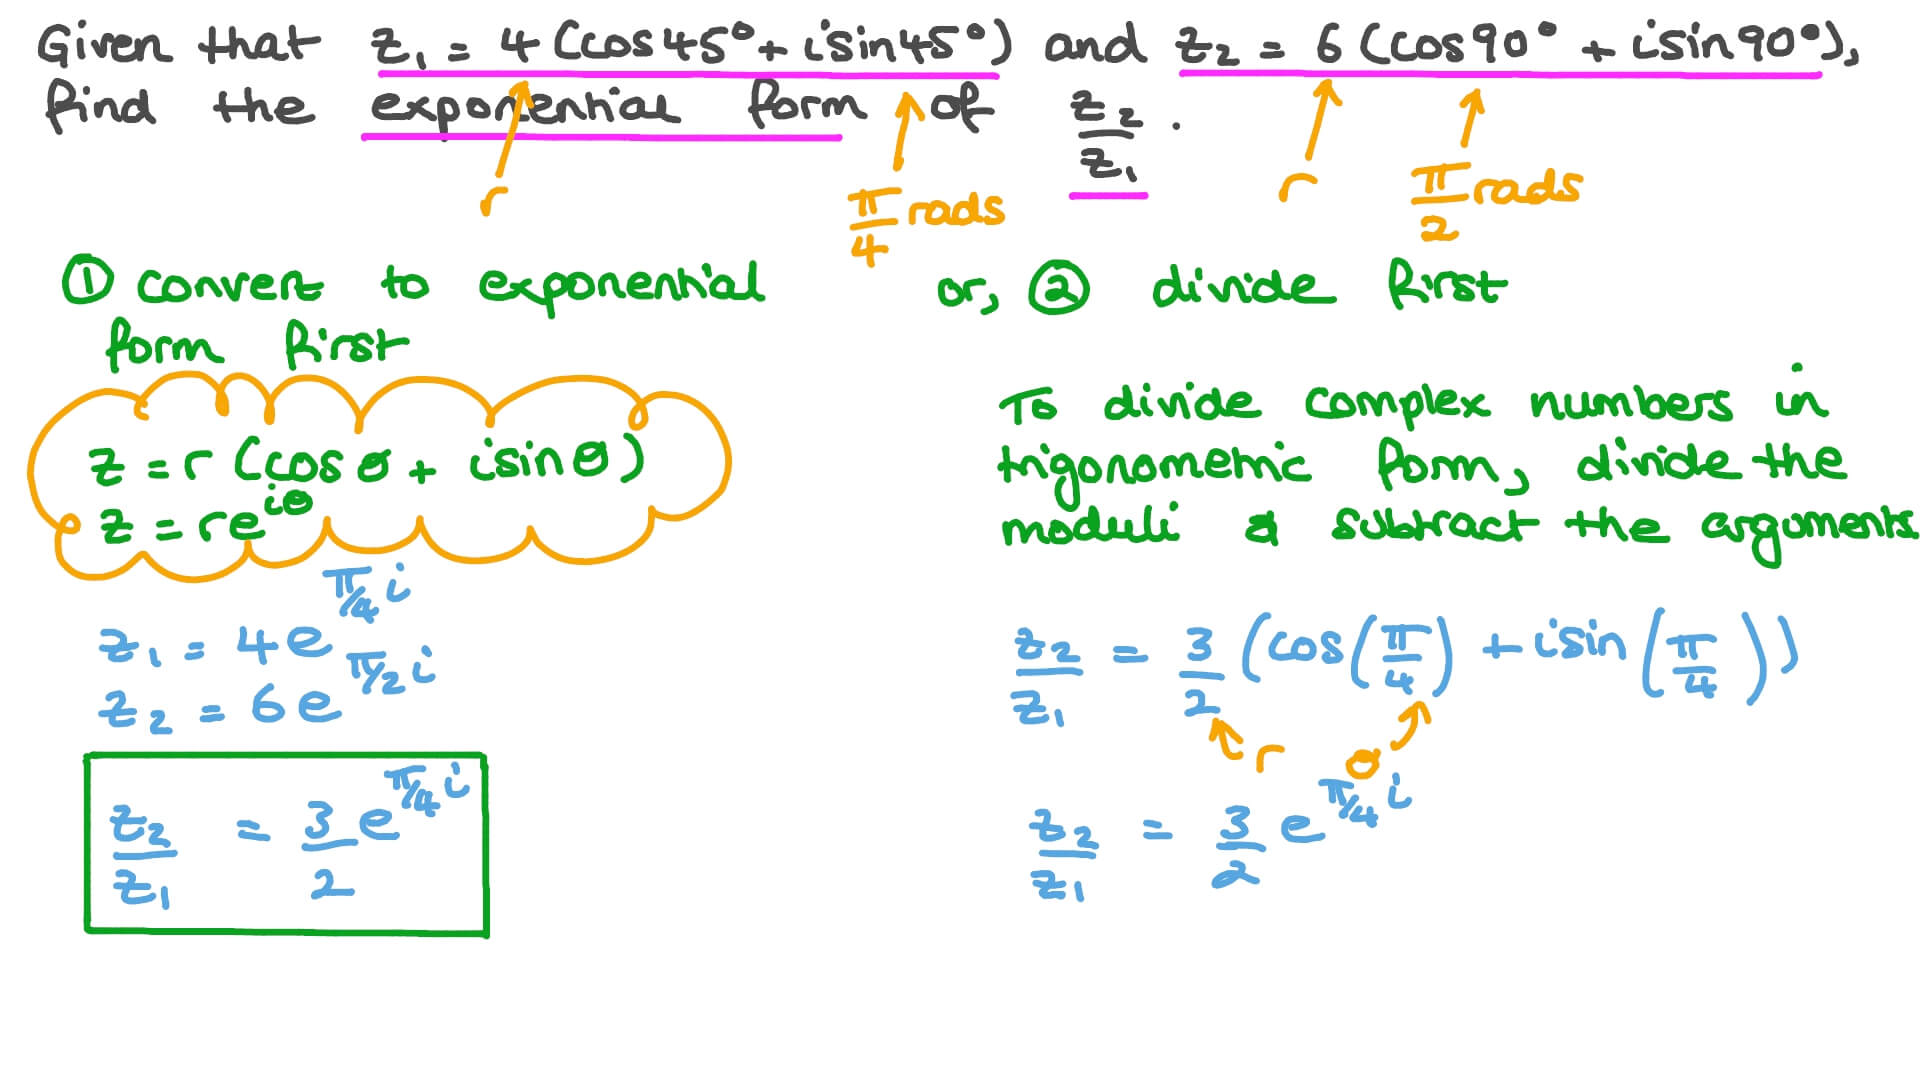 Given that z₁ = 4 (cos45° + isin45°) and z₂ = 6 (cos90° + isin90°),
find the exponential form of z₂/z₁.
r
π/4 rads
r
π/2 rads
① convert to exponential
form first
z = r (cos θ + isin θ)
z = re^iθ
z₁ = 4e^π/4 i
z₂ = 6e^π/2 i
z₂/z₁ = 3/2 e^π/4 i
or, ② divide first
To divide complex numbers in
trigonometric form, divide the
moduli & subtract the arguments.
z₂/z₁ = 3/2 (cos(π/4) + isin(π/4))
r θ
z₂/z₁ = 3/2 e^π/4 i